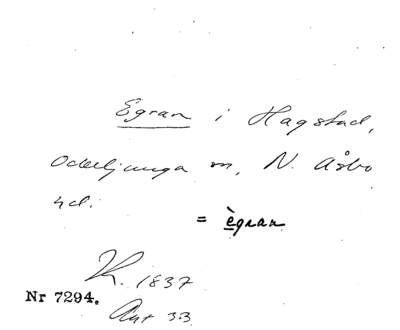 Egran i Hagstad,
Örkelljunga sn, N. Åsbo
hd.
= ègran
K. 1837
Nr 7294.
Ant 33